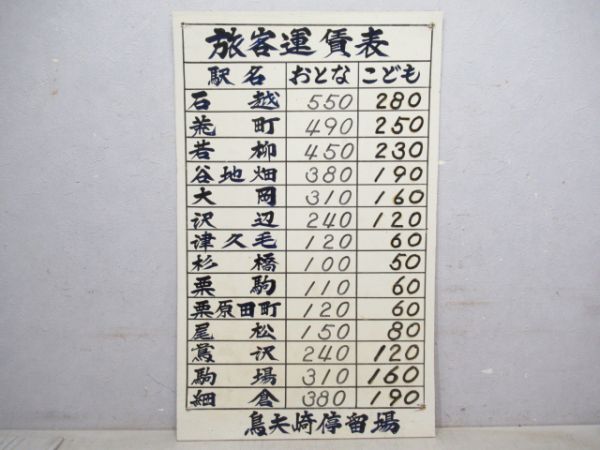 旅客運賃表
駅名 おとな こども
石越 550 280
荒町 490 250
若柳 450 230
谷地畑 380 190
大岡 310 160
沢辺 240 120
津久毛 120 60
杉橋 100 50
栗駒 110 60
栗原田町 120 60
尾松 150 80
鶯沢 240 120
駒場 310 160
細倉 380 190
鳥矢崎停留場